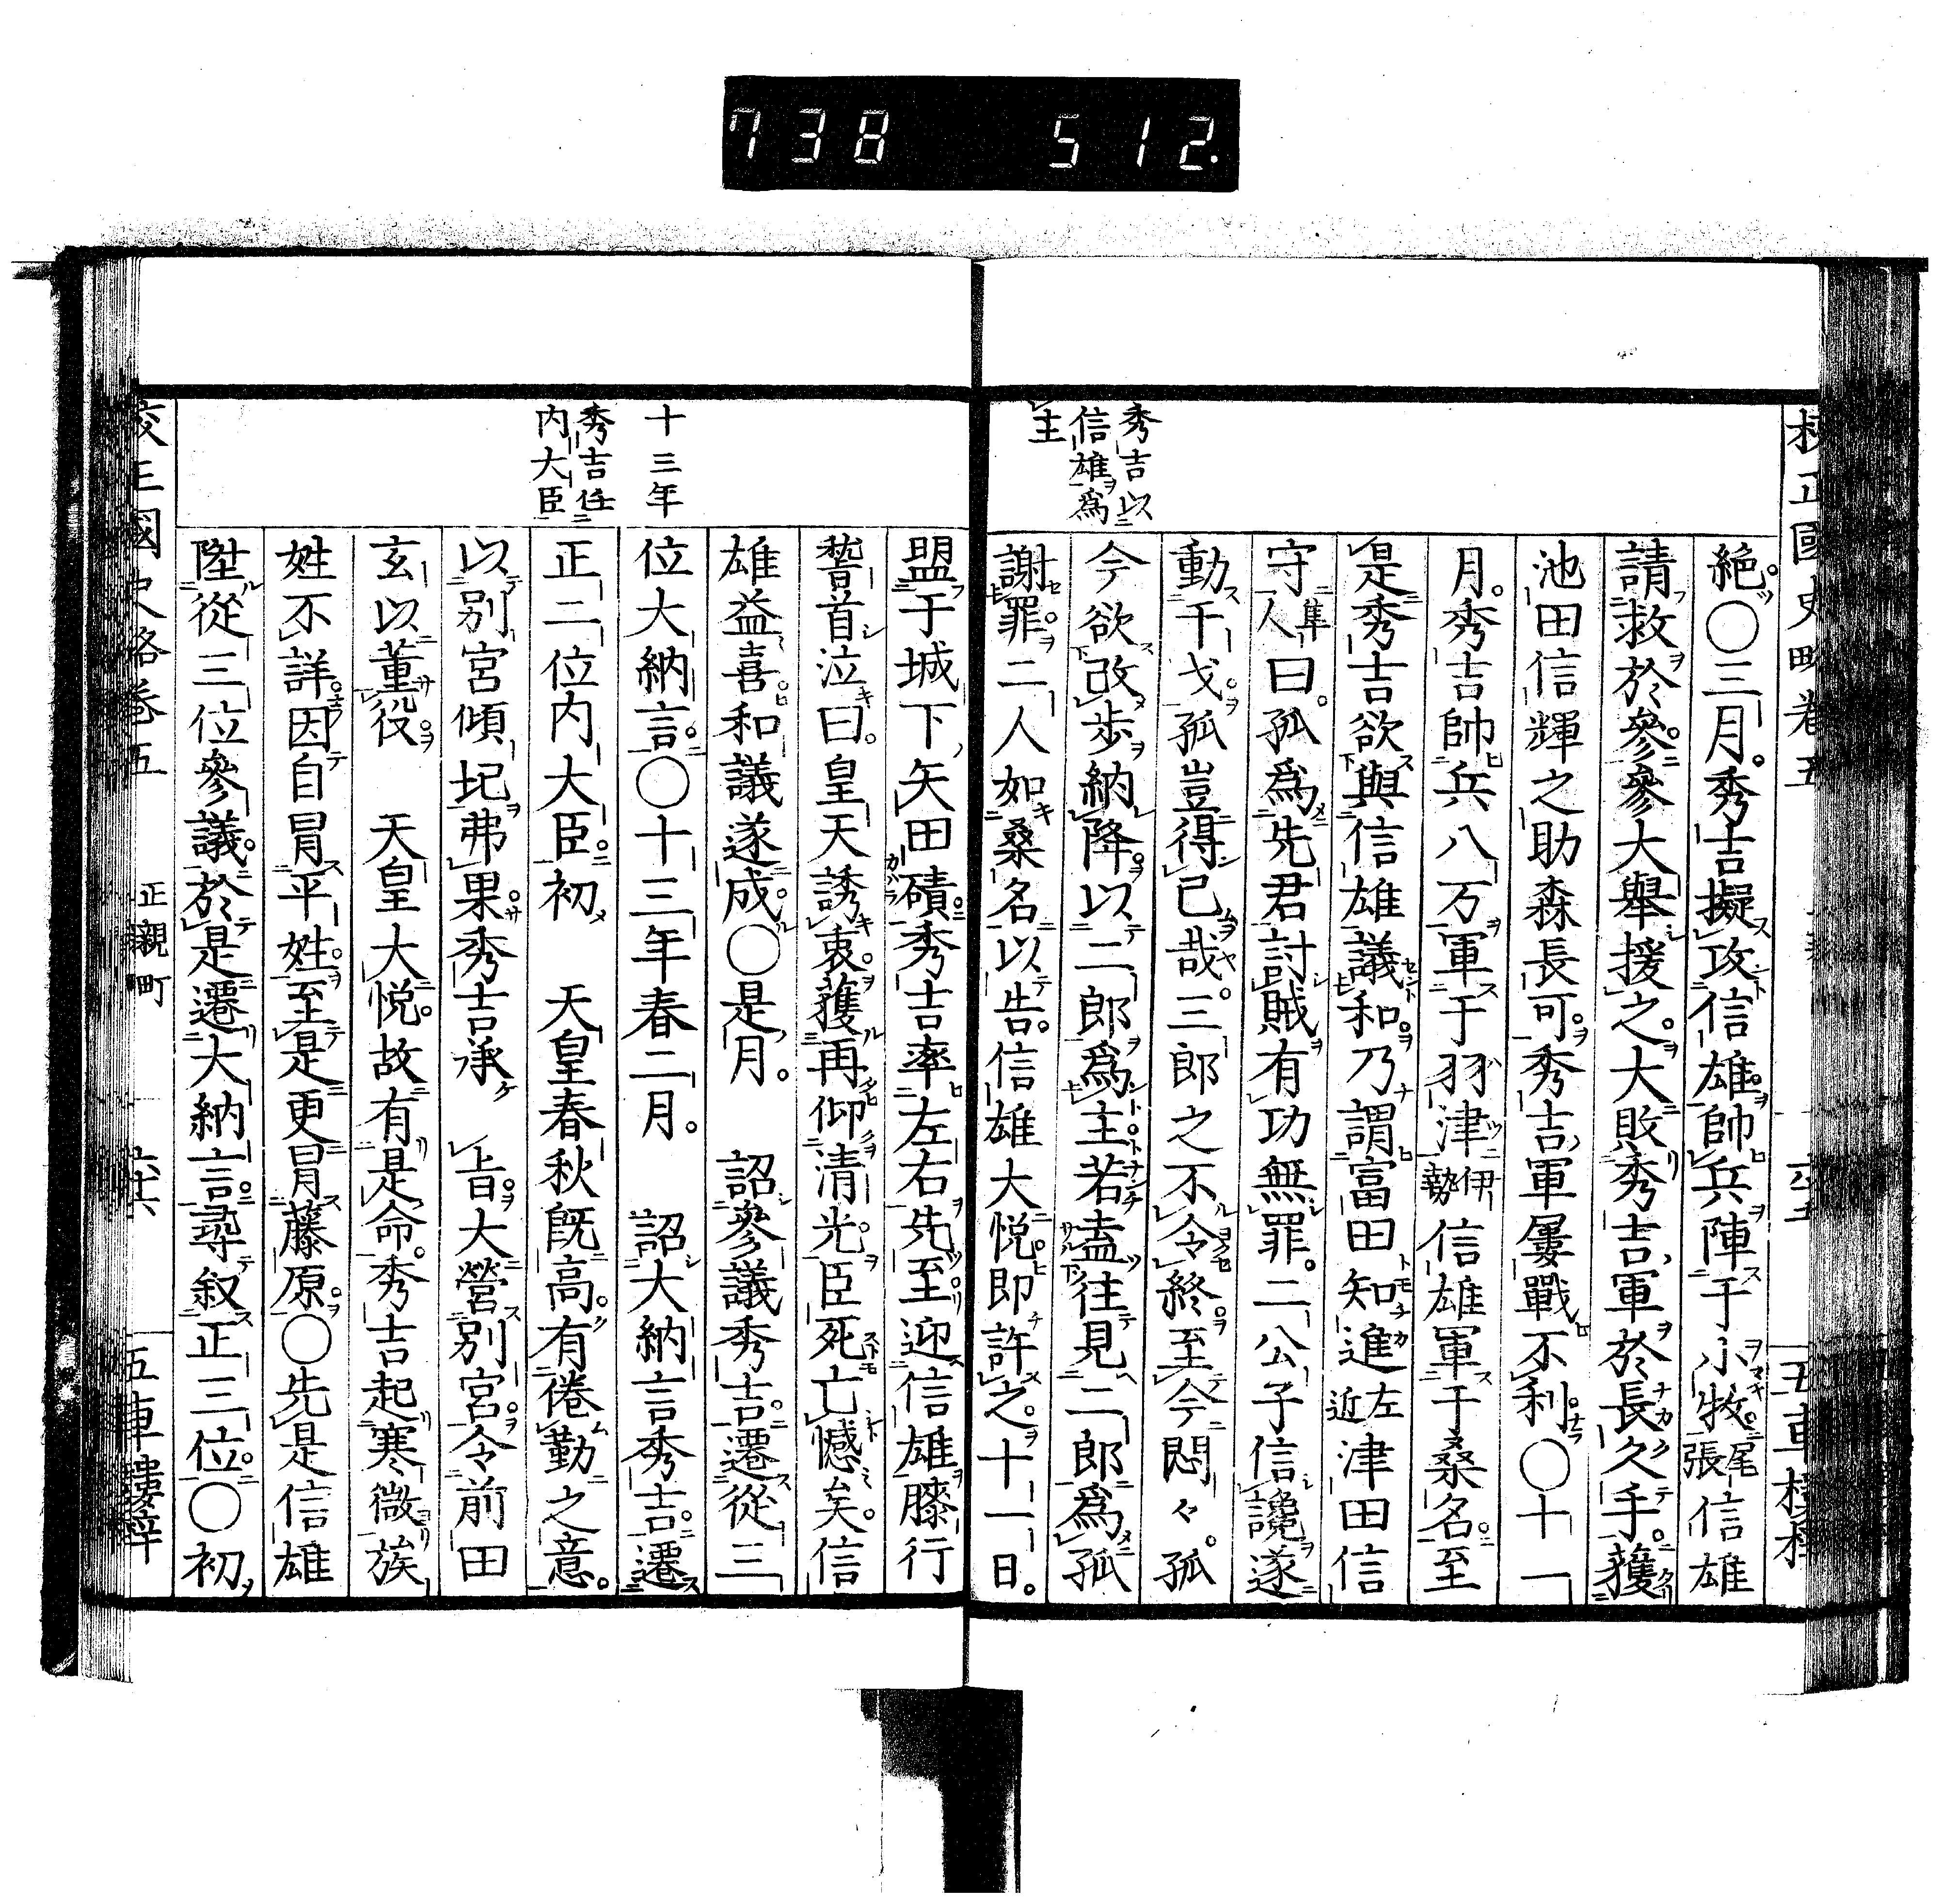 738 512.
秀吉以
信雄爲
主
絶〇三月。秀吉擬攻信雄帥兵陣于小牧尾張信雄
請救於參。參大舉援之。大敗秀吉軍於長久手。獲
池田信輝之助森長可。秀吉軍屢戰不利〇十一
月。秀吉帥兵八万軍于羽津伊勢信雄軍于桑名。至
是秀吉欲與信雄議和。乃謂富田知進左近津田信
守隼人曰。孤爲先君討賊有功無罪。二公子信讒遂
動干戈。孤豈得已哉。三郎之不令終。至今悶々。孤
今欲改歩納降。以二郎爲主。若盍往見二郎爲孤
謝罪。二人如桑名以告。信雄大悦即許之。十一日。
盟于城下矢田磧。秀吉率左右先至迎信雄膝行
𥡴首泣曰。皇天誘衷。獲再仰清光。臣死亡憾矣。信
雄益喜。和議遂成〇是月。 詔參議秀吉遷從三
位大納言〇十三年春二月。 詔大納言秀吉遷
正二位内大臣。初 天皇春秋既高。有倦勤之意。
以別宮傾圮弗果。秀吉承 旨。大營別宮。令前田
玄以董役。 天皇大悦。故有是命。秀吉起寒微族
姓不詳。因自冒平姓。至是更冒藤原。〇先是信雄
陞從三位參議。於是遷大納言。尋叙正三位。〇初
十三年
秀吉任
内大臣
校正國史略卷五
正親町